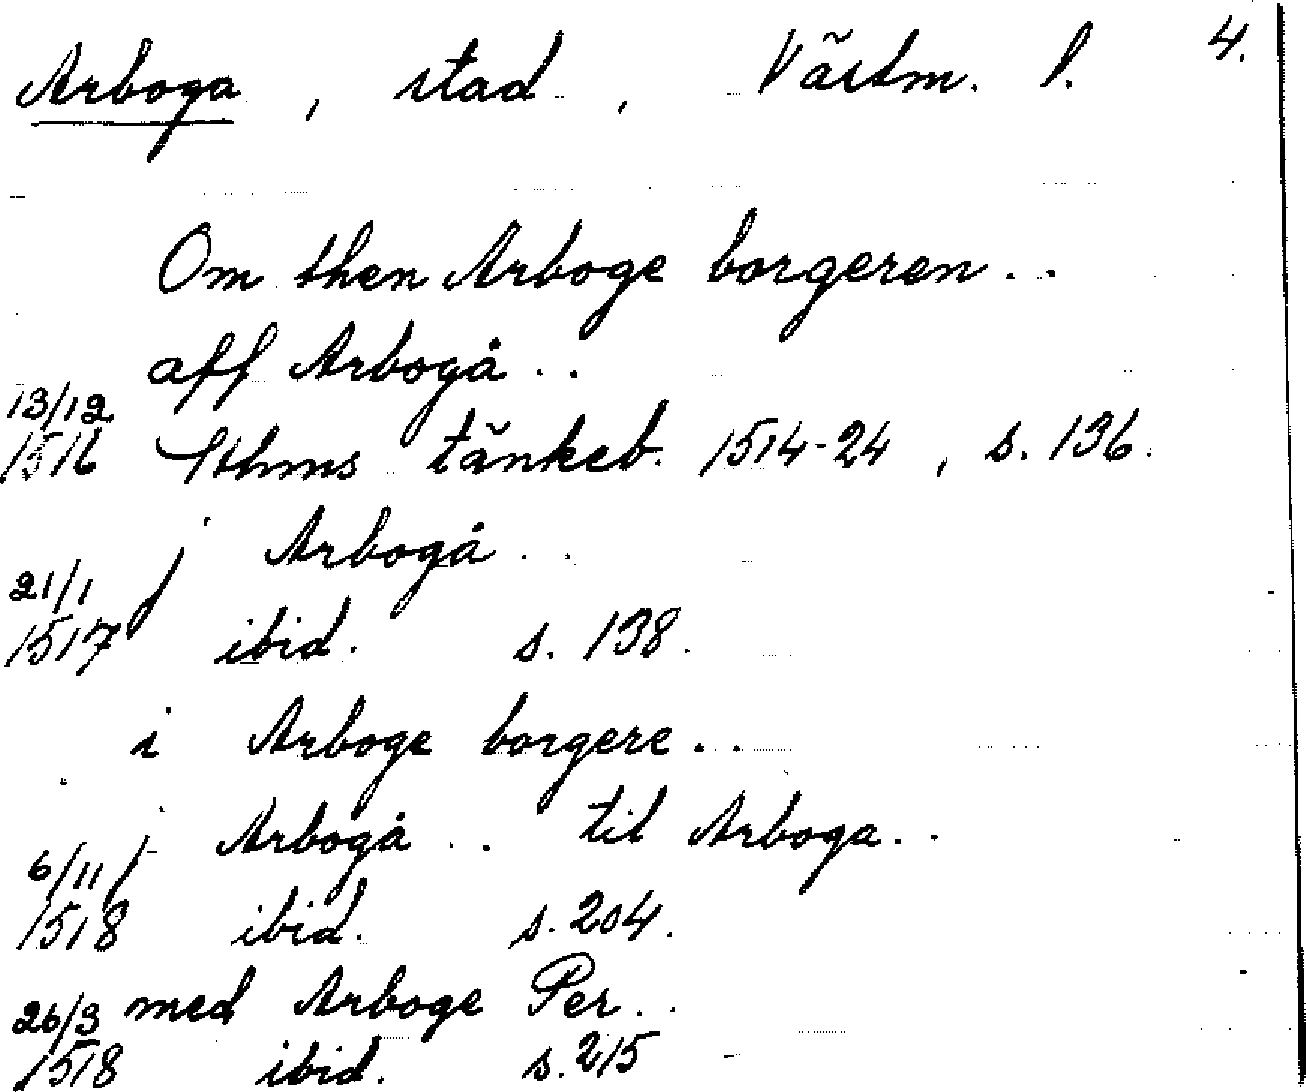 Arboga, stad, Västm. l. 4.
Om then Arboge borgeren..
aff Arbogå..
13/12
1516 Sthms tänkeb. 1514-24, s. 136.
j Arbogå..
21/1
1517 ibid. s. 138.
i Arboge borgere..
j Arbogå.. til Arboga..
6/11
1518 ibid. s. 204.
26/3 med Arboge Per..
1518 ibid. s. 215